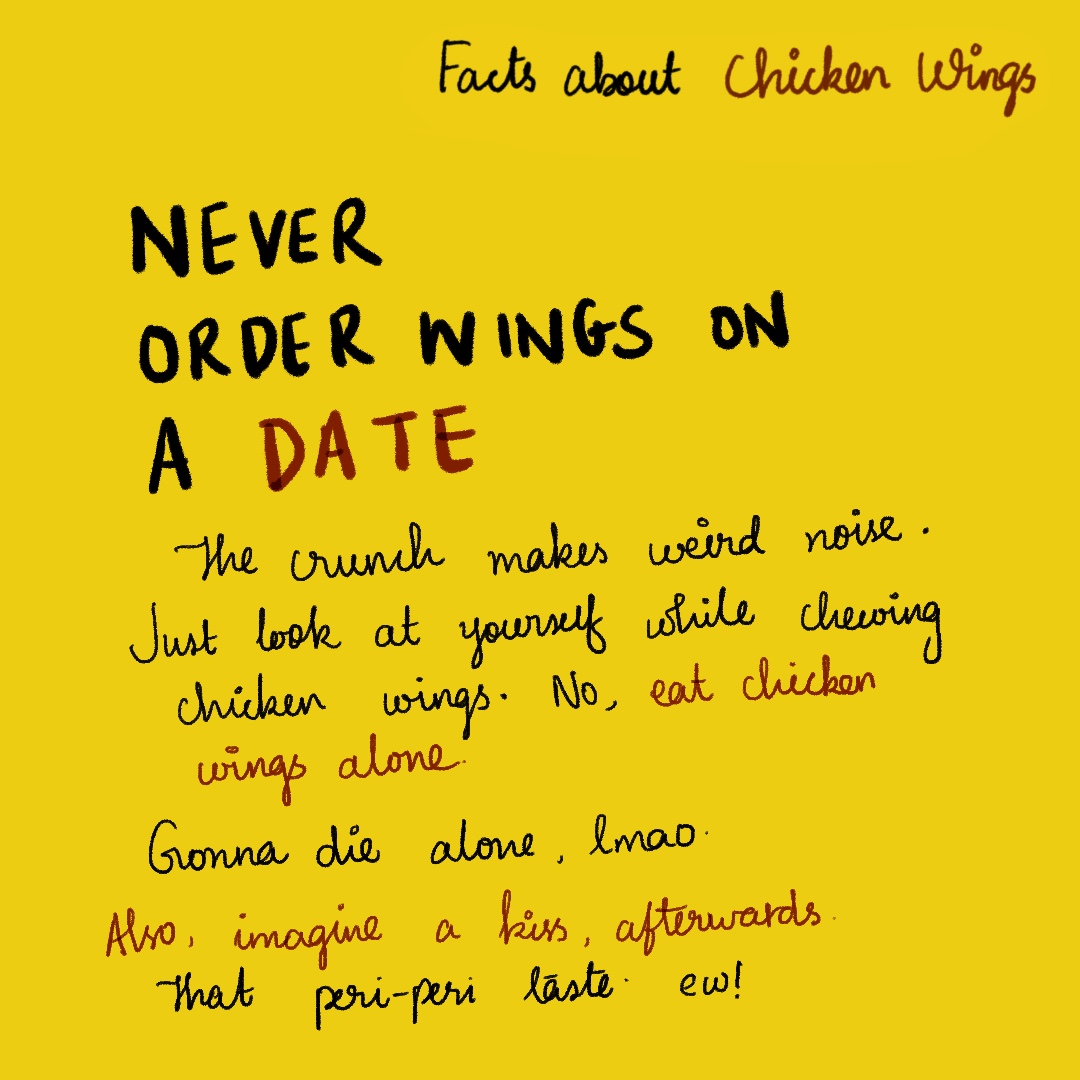 Facts about Chicken Wings
NEVER
ORDER WINGS ON
A DATE
The crunch makes weird noise.
Just look at yourself while chewing
chicken wings. No, eat chicken
wings alone.
Gonna die alone, lmao.
Also, imagine a kiss, afterwards.
That peri-peri taste. ew!